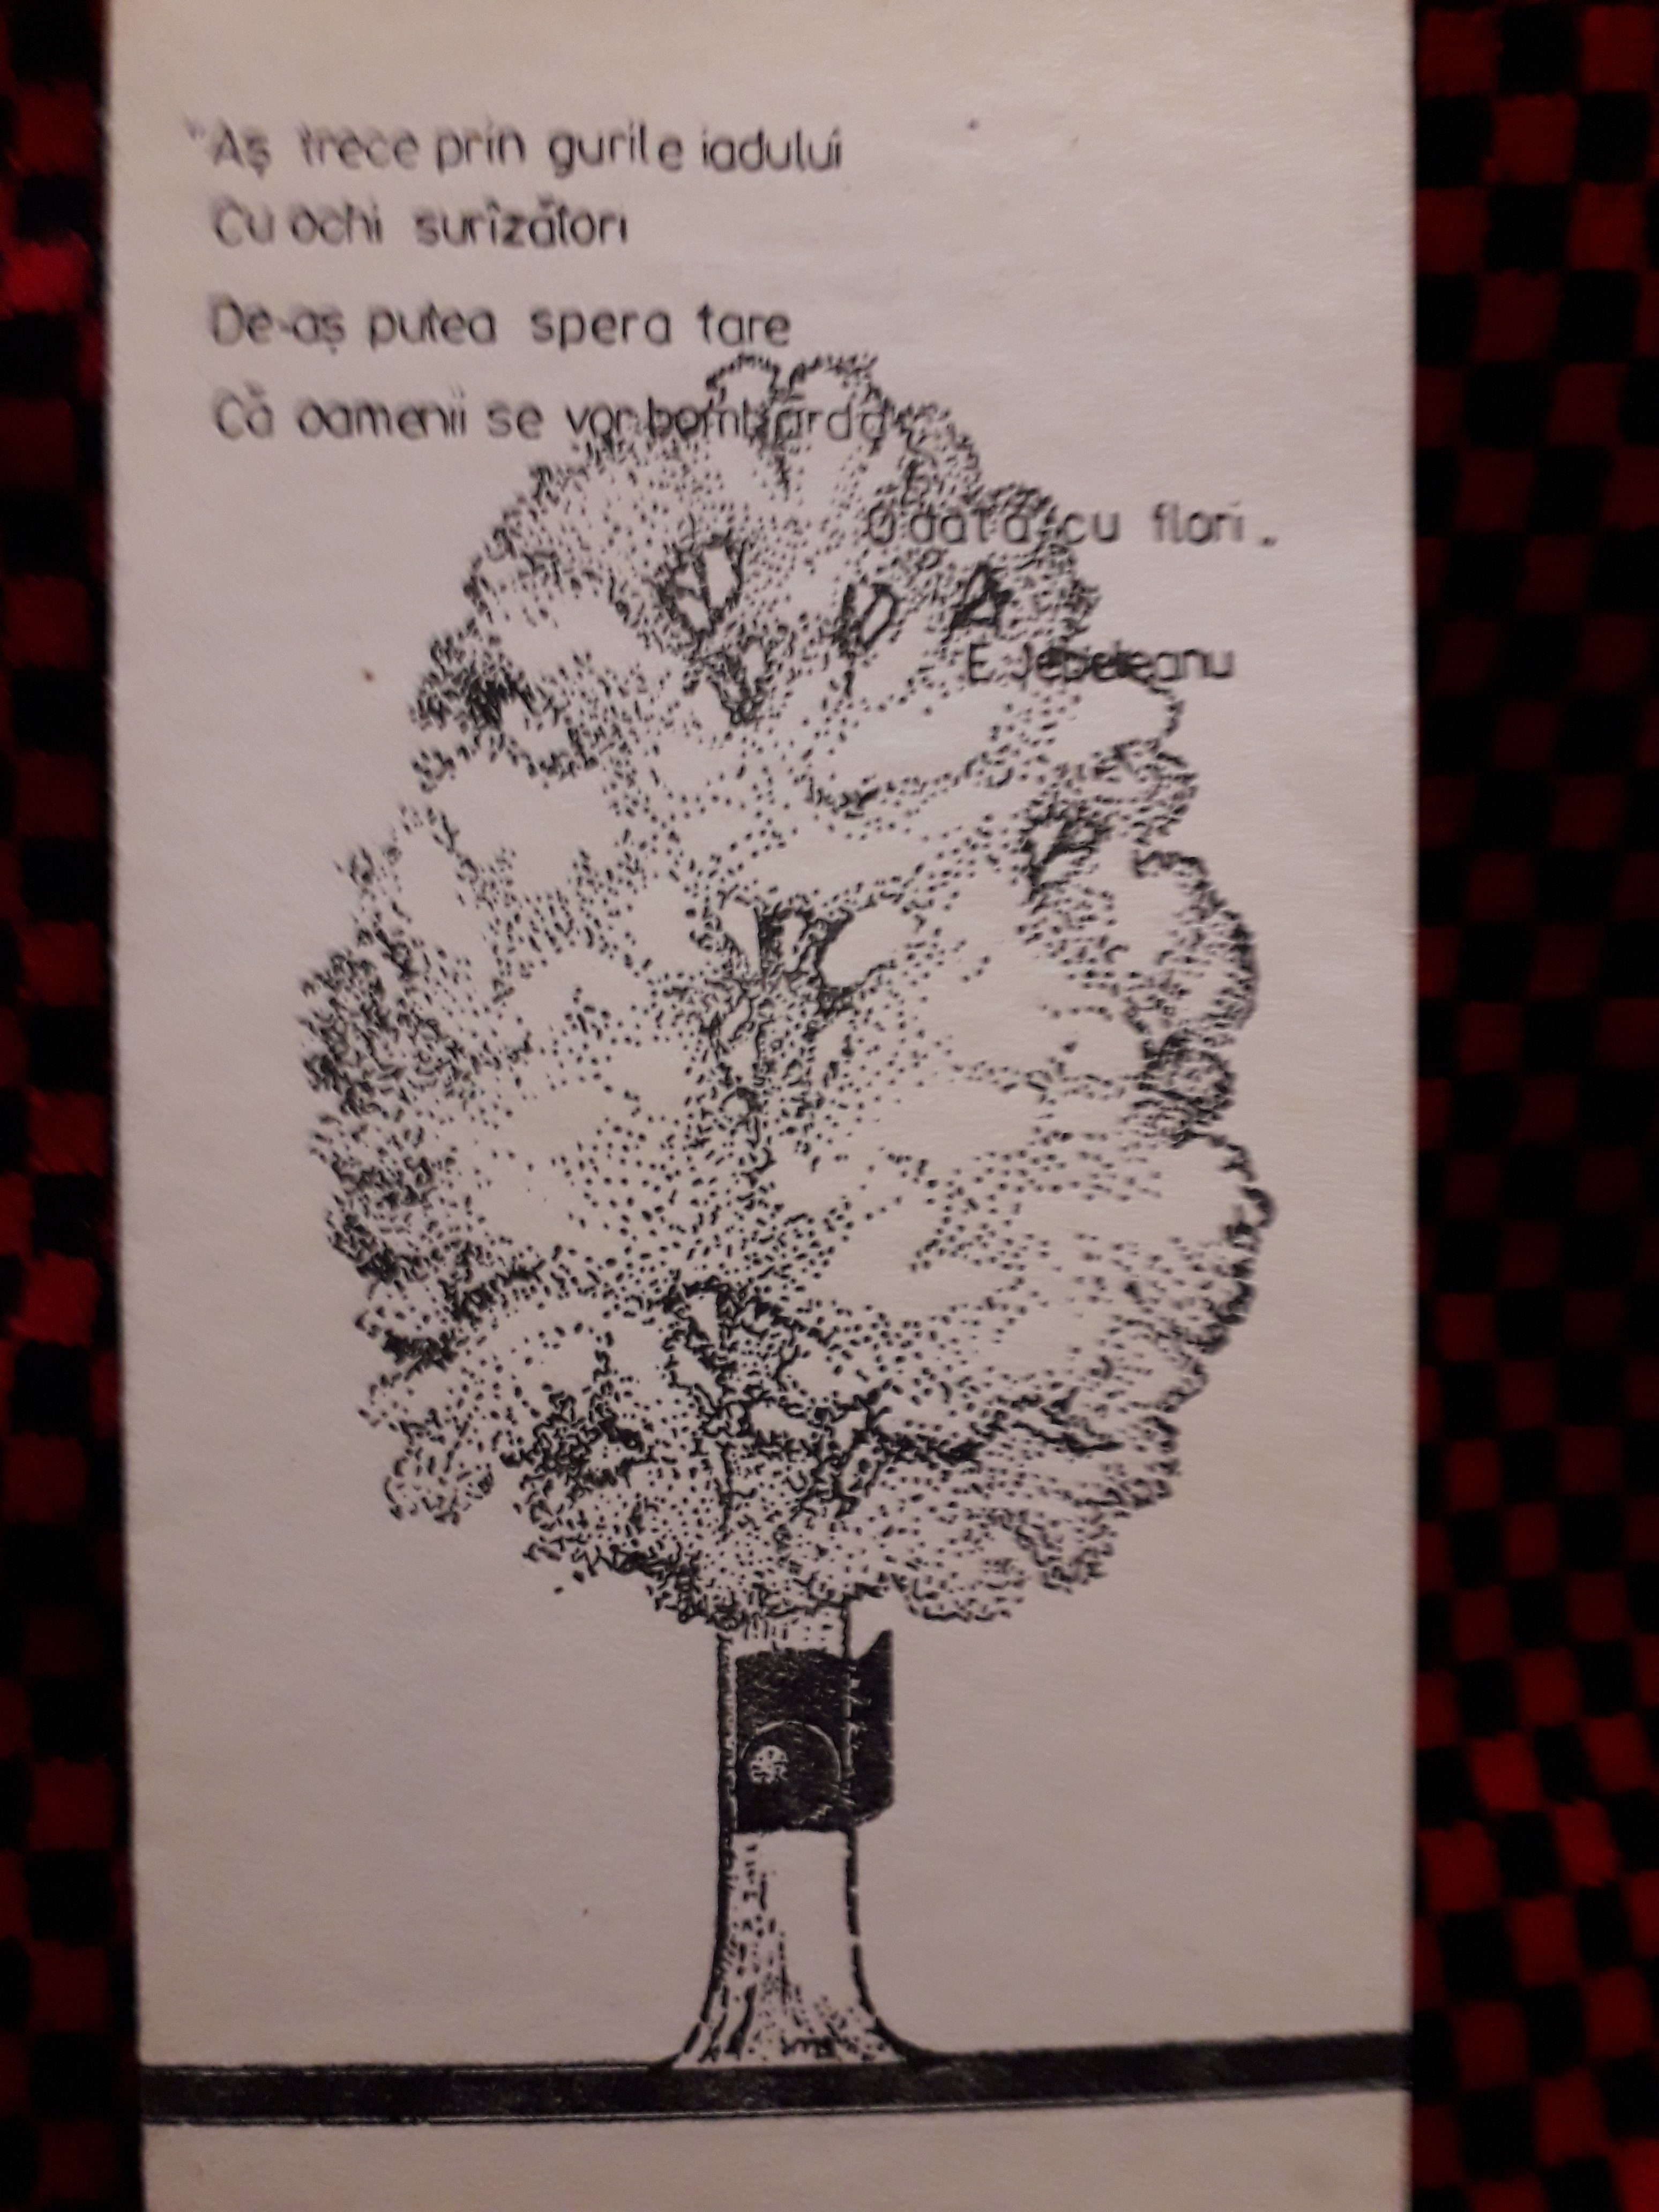 "Aș trece prin gurile iadului
Cu ochi surîzători
De-aș putea spera tare
Că oamenii se vor bombarda
Odată cu flori„
E. Jebeleanu